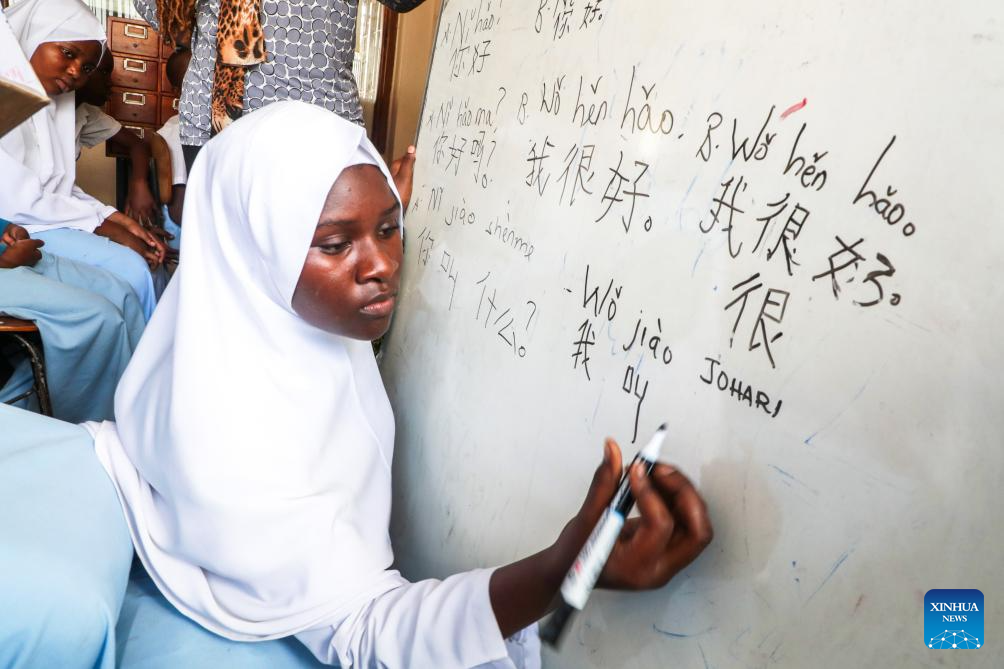 A. Nǐ hǎo!
B. 你好
你好
A. Nǐ hǎo ma?
你好吗?。
B. Wǒ hěn hǎo.
我很好。
B. Wǒ hěn hǎo。
我很好。
很
A. Nǐ jiào shénme
你叫什么?。
- Wǒ jiào JOHARI
我叫
XINHUA
NEWS